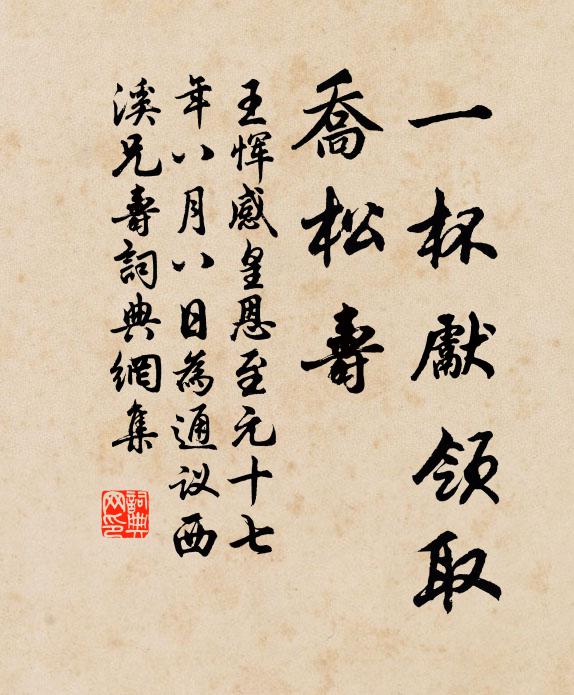 一杯獻領取
喬松壽
王惲感皇恩至元十七
年八月八日為通议西
溪兄壽詞典網集
詞典
网印